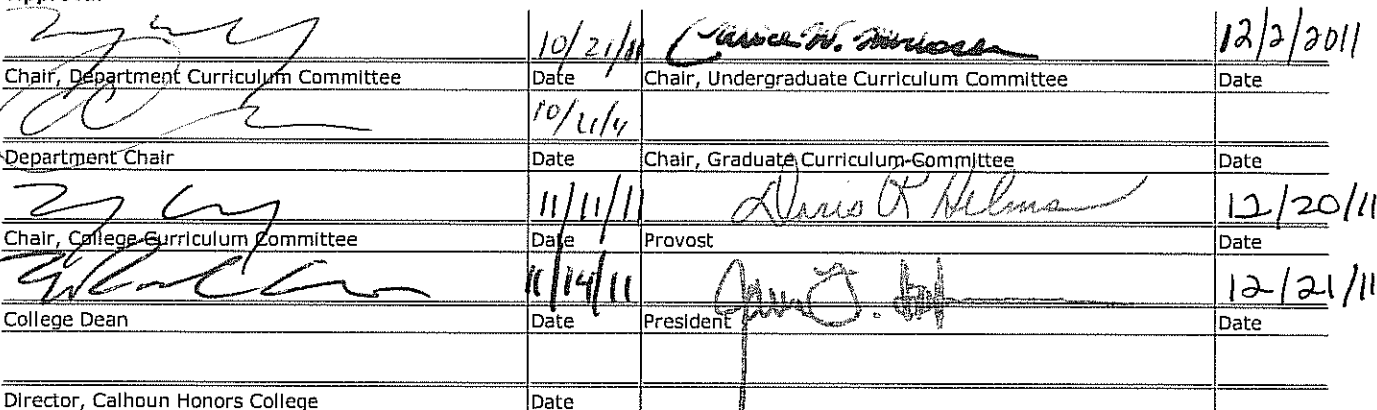 10/21/11 12/2/2011
Chair, Department Curriculum Committee Date Chair, Undergraduate Curriculum Committee Date
Department Chair Date Chair, Graduate Curriculum Committee Date
11/11/11 Doris R Helms 12/20/11
Chair, College Curriculum Committee Date Provost Date
11/14/11 12/21/11
College Dean Date President Date
Director, Calhoun Honors College Date